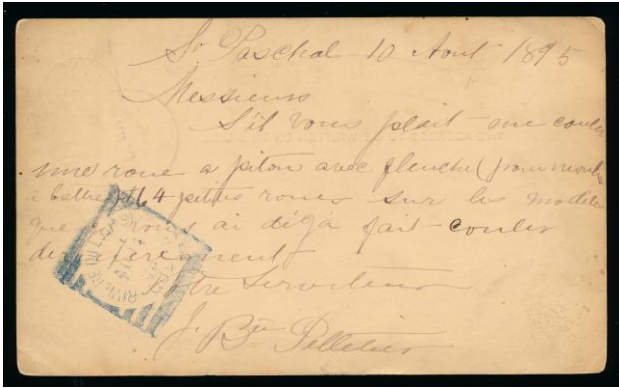 St Paschal 10 Aout 1895
Messieurs
S'il vous plait me couler
une roue a piton avec flenche (pour moulin
a battre) et 4 petites roues sur les modeles
que vous ai déja fait couler
dernierement
Votre Serviteur
J. Bte Pelletier
RIVIERE DU LOUP